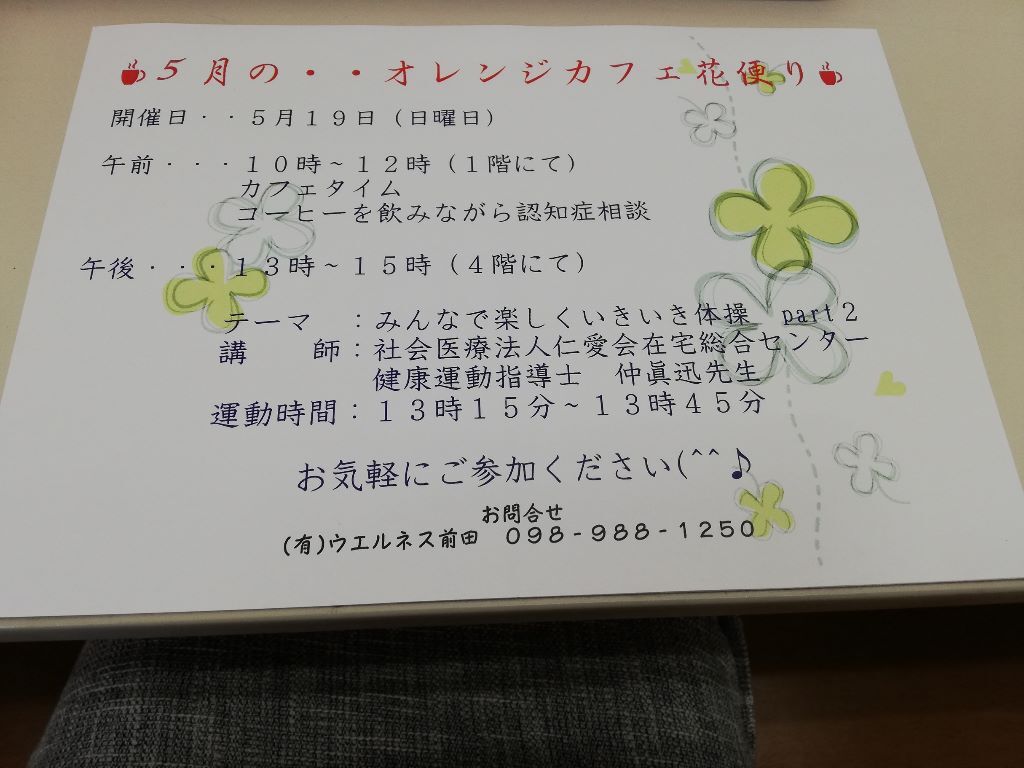 5月の・・オレンジカフェ花便り
開催日・・5月19日(日曜日)
午前・・・10時~12時(1階にて)
カフェタイム
コーヒーを飲みながら認知症相談
午後・・・13時~15時(4階にて)
テーマ :みんなで楽しくいきいき体操 part2
講 師:社会医療法人仁愛会在宅総合センター
健康運動指導士 仲眞迅先生
運動時間:13時15分~13時45分
お気軽にご参加ください(^^♪
お問合せ
(有)ウエルネス前田 098-988-1250